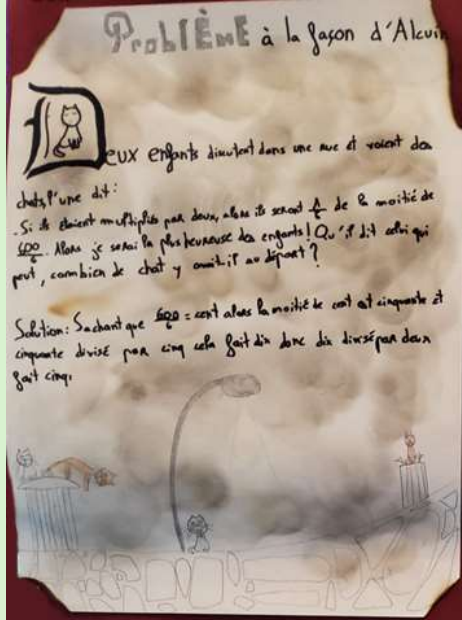 ProblÈME à la façon d'Alcuin
Deux enfants discutent dans une rue et voient des
chats, l'une dit :
- Si ils étaient multipliés par deux, alors ils seront 1/5 de la moitié de
600/6. Alors je serai la plus heureuse des enfants ! Qu'il dit celui qui
peut, combien de chat y avait il au départ ?
Solution : Sachant que 600/6 = cent alors la moitié de cent est cinquante et
cinquante divisé par cinq cela fait dix donc dix divisé par deux
fait cinq.